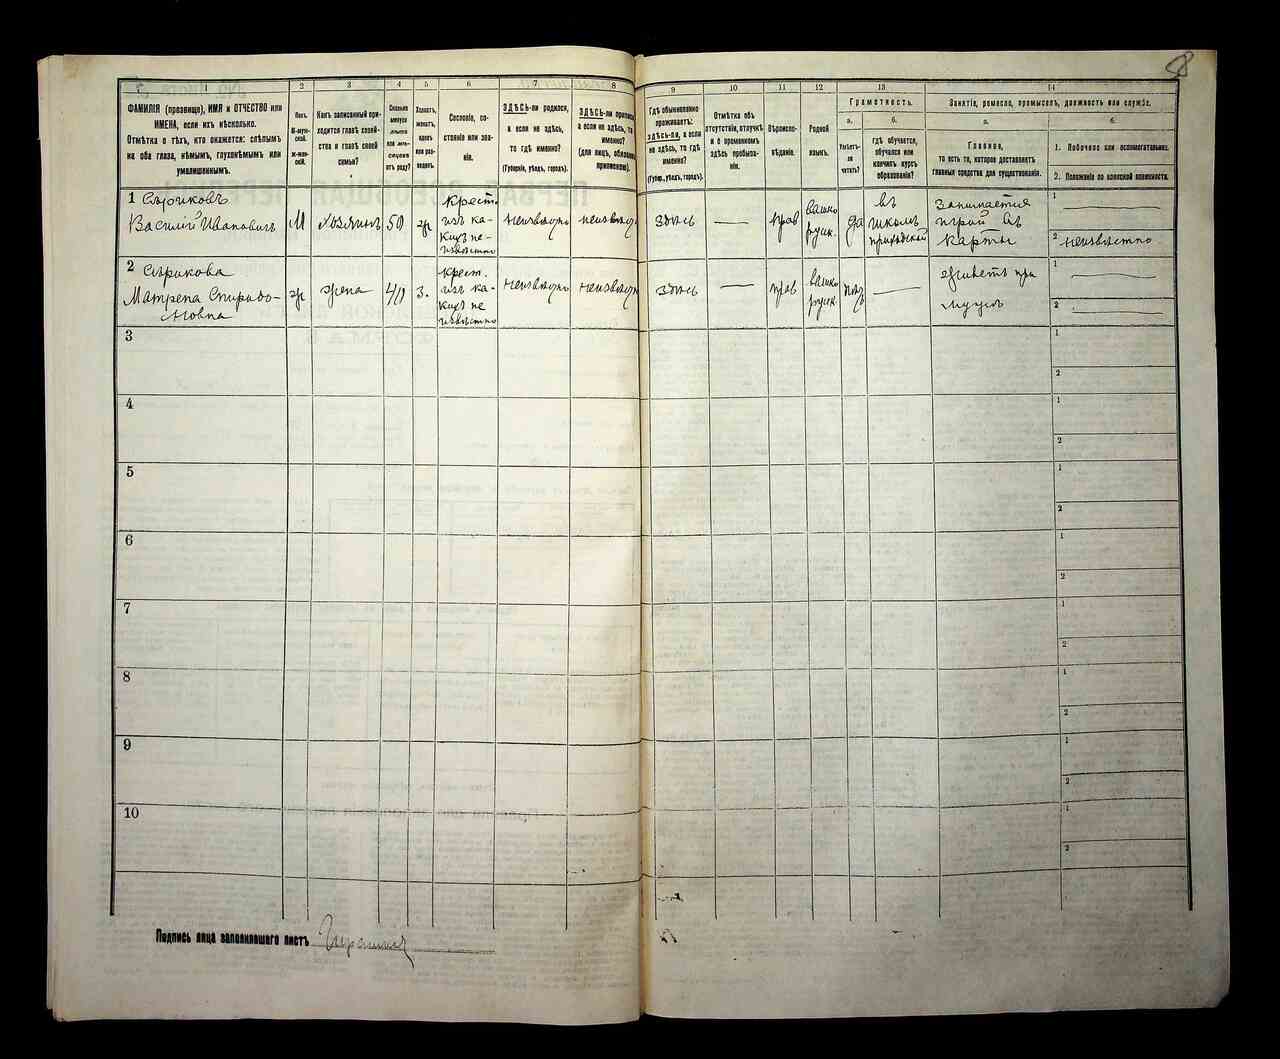 1 2 3 4 5 6 7 8 9 10 11 12 13 14
ФАМИЛІЯ (прозвище), ИМЯ и ОТЧЕСТВО или
ИМЕНА, если ихъ нѣсколько.
Отмѣтка о тѣхъ, кто окажется: слѣпымъ
на оба глаза, нѣмымъ, глухонѣмымъ или
умалишеннымъ.
Полъ.
М-муж-
ской.
ж-жен-
скій.
Какъ записанный при-
ходится главѣ хозяй-
ства и главѣ своей
семьи?
Сколько
минуло
лѣтъ
или мѣ-
сяцевъ
отъ роду?
Холостъ,
женатъ,
вдовъ
или раз-
веденъ.
Сословіе, со-
стояніе или зва-
ніе.
ЗДѢСЬ-ли родился,
а если не здѣсь,
то гдѣ именно?
(Губернія, уѣздъ, городъ).
ЗДѢСЬ-ли приписанъ
а если не здѣсь, то
именно?
(для лицъ,
Гдѣ обыкновенно
проживаетъ:
здѣсь-ли, а если
не здѣсь, то гдѣ
именно?
(Губер., уѣздъ, городъ).
Отмѣтка объ
отсутствіи, отлучкѣ
и о временномъ
здѣсь пребыва-
ніи.
Вѣроиспо-
вѣданіе.
Родной
языкъ.
Грамотность.
а.
Умѣетъ-
ли
читать?
б.
гдѣ обучается,
обучался или
кончилъ курсъ
образованія?
Занятіе, ремесло, промыселъ, должность или служба.
а.
Главное,
то есть то, которое доставляетъ
главныя средства для существованія.
б.
1. Побочное или вспомогательное.
2. Положеніе по воинской повинности.
1 Сѣриковъ
Василій Ивановичъ М хозяинъ 50 ж
Крест.
изъ ка-
кихъ не-
извѣстно
неизвѣстно неизвѣстно здѣсь — прав
велико
русск.
да
въ
школѣ
приходской
Занимается
игрой въ
карты
1
2 неизвѣстно
2 Сѣрикова
Матрена Спиридо-
новна ж жена 40 з.
Крест.
изъ ка-
кихъ не
извѣстно
неизвѣстно неизвѣстно здѣсь — прав
велико
русск.
—
живетъ при
мужѣ
1
2
3 1
2
4 1
2
5 1
2
6 1
2
7 1
2
8 1
2
9 1
2
10 1
2
Подпись лица заполнившаго листъ